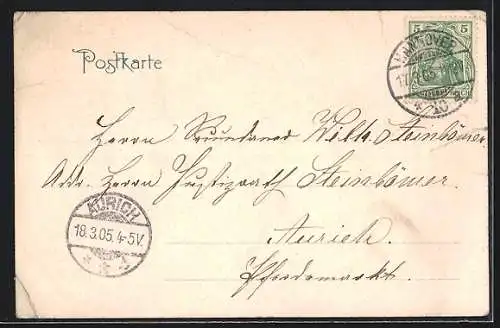 Postkarte
5 5
HANNOVER
17.3.05
* 10 *
Herrn Wilh. Steinbömer.
Adr. Herrn Justizrath Steinbömer.
AURICH
18.3.05. 4-5V.
* * *
Aurich.
Pferdemarkt.